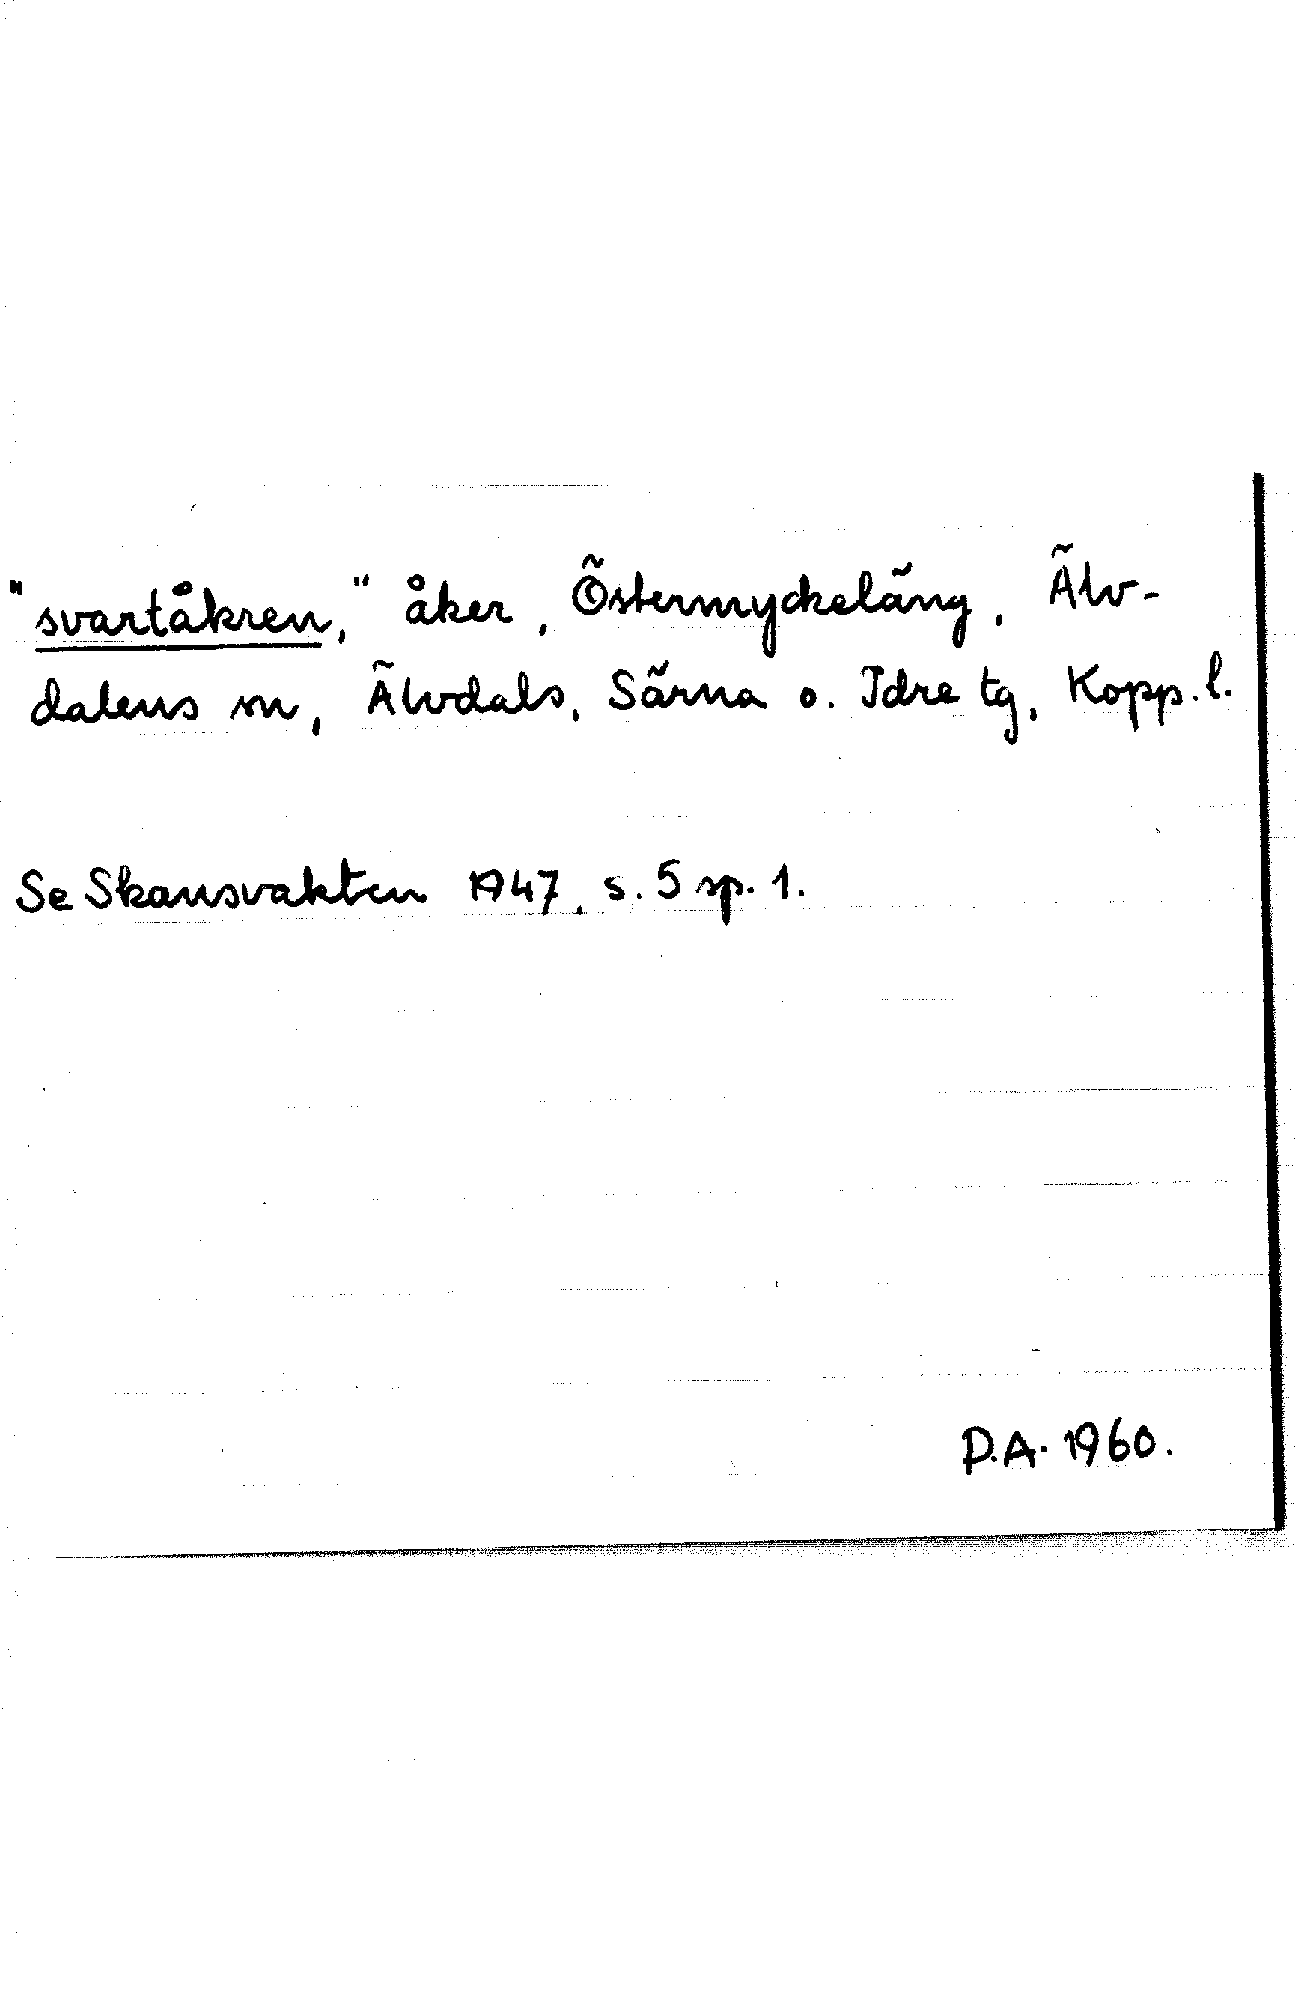 "svartåkren," åker, Östermyckeläng, Älv-
dalens sn, Älvdals, Särna o. Idre tg, Kopp. l.
Se Skansvakten 1947, s. 5 sp. 1.
D.A. 1960.